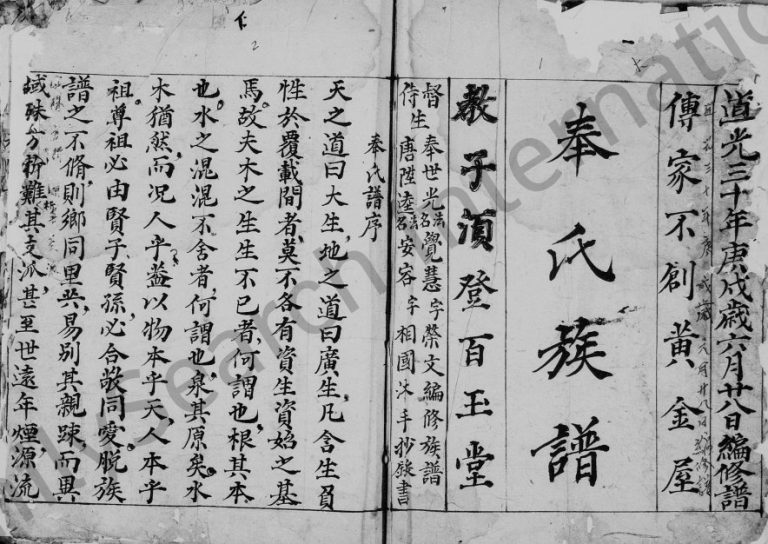 道光三十年庚戌歲六月廿八日編修譜
傳家不創黃金屋
奉氏族譜
教子須登百玉堂
督生奉世光法名覺慧字榮文編修族譜
侍生唐陞逵法名安容字相國沐手抄錄書
奉氏譜序
天之道曰大生地之道曰廣生凡含生負
性於覆載間者莫不各有資生資始之基
焉故夫木之生生不已者何謂也根其本
也水之混混不舍者何謂也泉其原矣水
木猶然而况人乎蓋以物本乎天人本乎
祖尊祖必由賢子賢孫必合敬同愛脱族
譜之不脩則鄉同里共易別其親踈而異
域殊方析難其支派甚至世遠年煙源流